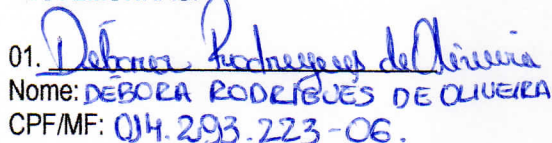 01. Débora Rodrigues de Oliveira
Nome: DÉBORA RODRIGUES DE OLIVEIRA
CPF/MF: 014.293.223-06.